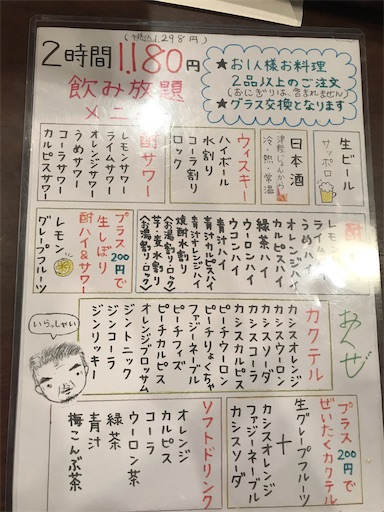 (税込1,298円)
2時間1,180円
飲み放題
メニ
★お1人様お料理
2品以上のご注文
(おにぎりは、含まれません)
★グラス交換となります
生ビール
サッポロ
日本酒
津軽じょんから
冷・熱・常温
ウィスキー
ハイボール
水割り
コーラ割り
ロック
酎サワー
レモンサワー
ライムサワー
オレンジサワー
うめサワー
コーラサワー
カルピスサワー
酎
レモン
ライム
うめハイ
オレンジハイ
カルピスハイ
緑茶ハイ
ウーロンハイ
ウコンハイ
青汁ハイ
青汁カルピスハイ
青汁オレンジハイ
焼酎水割り
(お湯割り・ロック)
芋・麦水割り
(お湯割り・ロック)
プラス200円で
生しぼり
酎ハイ&サワー
レモン
グレープフルーツ
あくぜ
カクテル
カシスオレンジ
カシスウーロン
カシスソーダ
カシスコーラ
カシスカルピス
ピーチウーロン
ピーチりょくちゃ
ファジーネーブル
ピーチフィズ
ピーチカルピス
オレンジブロッサム
ジントニック
ジンコーラ
ジンリッキー
いらっしゃい
プラス200円で
ぜいたくカクテル
生グレープフルーツ
+
カシスオレンジ
ファジーネーブル
カシスソーダ
ソフトドリンク
オレンジ
カルピス
コーラ
ウーロン茶
緑茶
青汁
梅こんぶ茶